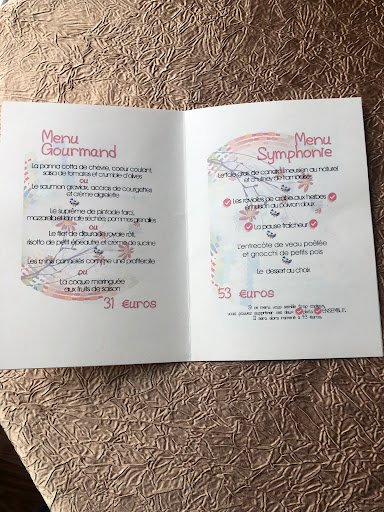 Menu
Gourmand
La panna cotta de chèvre, coeur coulant,
salsa de tomates et crumble d'olives
ou
Le saumon gravlax, accras de courgettes
et crème aigrelette
Le suprême de pintade farci,
mozzarella et tomate séchée, pommes grenailles
ou
Le filet de daurade royale rôti,
risotto de petit épeautre et crème de sucrine
Les minis cannelés comme une profiterolle
ou
La coque meringuée
aux fruits de saison
31 €uros
Menu
Symphonie
Le foie gras de canard limousin au naturel
et chutney de
Les ravioles de crabe aux herbes
émulsion au poivron doux
La pause fraîcheur
L'entrecôte de veau poêlée
et gnocchi de petits pois
Le dessert au choix
53 €uros
Si ce menu vous semble trop copieux,
vous pouvez supprimer ces deux plats ENSEMBLE.
Il sera alors ramené à 43 €uros.